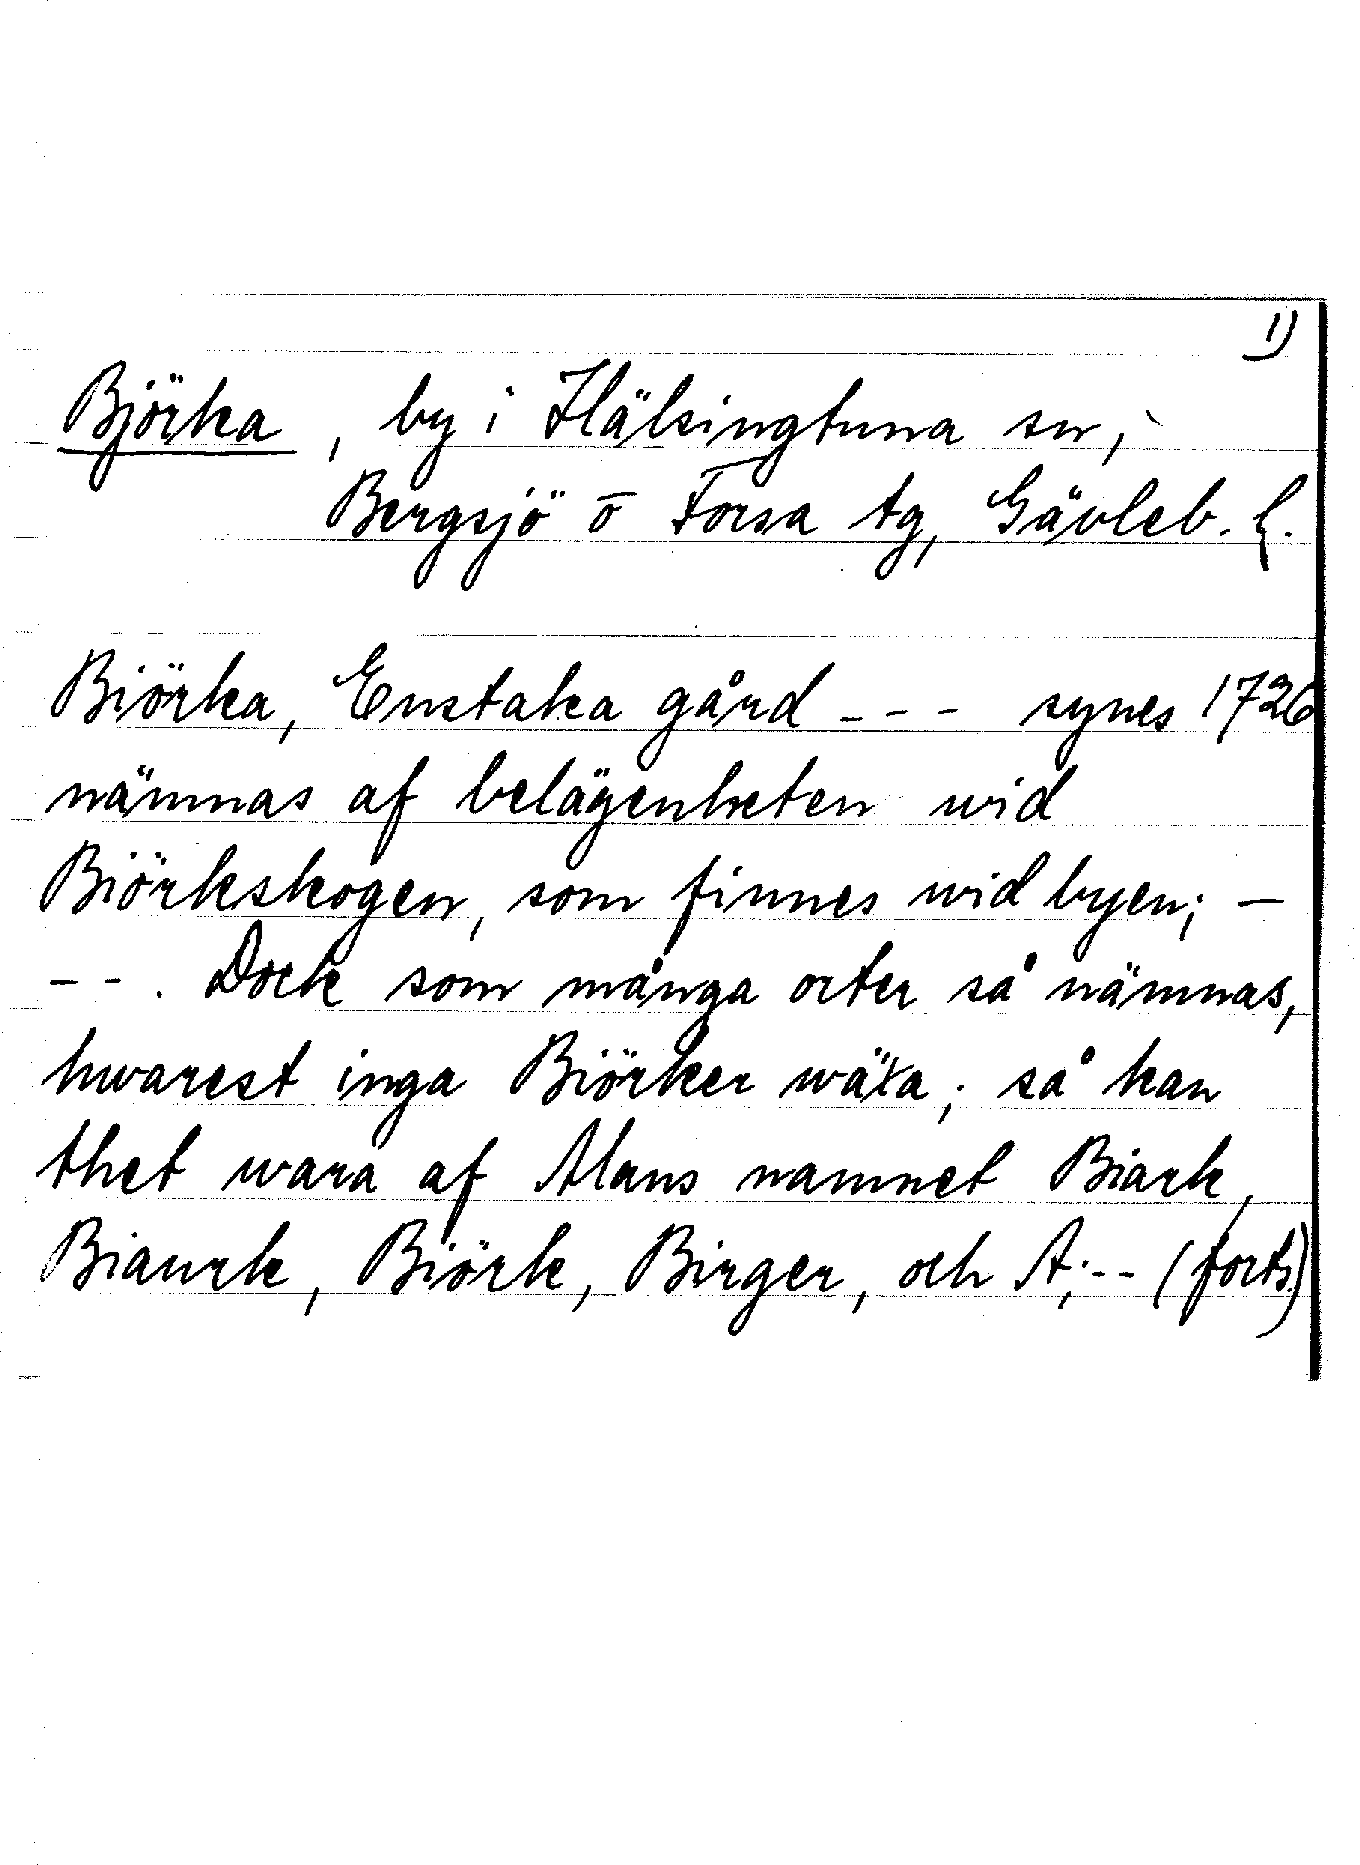 1)
Björka, by i Hälsingtuna sn,
Bergsjö o Forsa tg, Gävleb. l.
Biörka, Enstaka gård --- synes 1726
nämnas af belägenheten wid
Biörkskogen, som finnes wid byen; -
--. Dock som många orter så nämnas,
hwarest inga Biörker wäxa; så kan
thet wara af Mans namnet Biark,
Biaurk, Biörk, Birger, och A;-- (forts.)